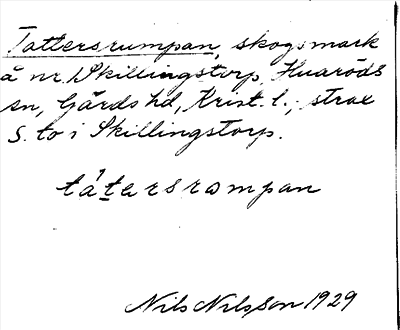 Tattersrumpan, skogsmark
å nr. 1 Skillingstorp, Huaröds
sn, Gärds hd, Krist. l.; strax
S. to i Skillingstorp.
tátersrompan
Nils Nilsson 1929